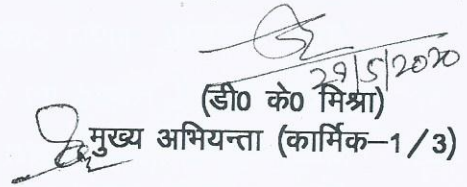 29/5/2020
(डी0 के0 मिश्रा)
मुख्य अभियन्ता (कार्मिक–1/3)